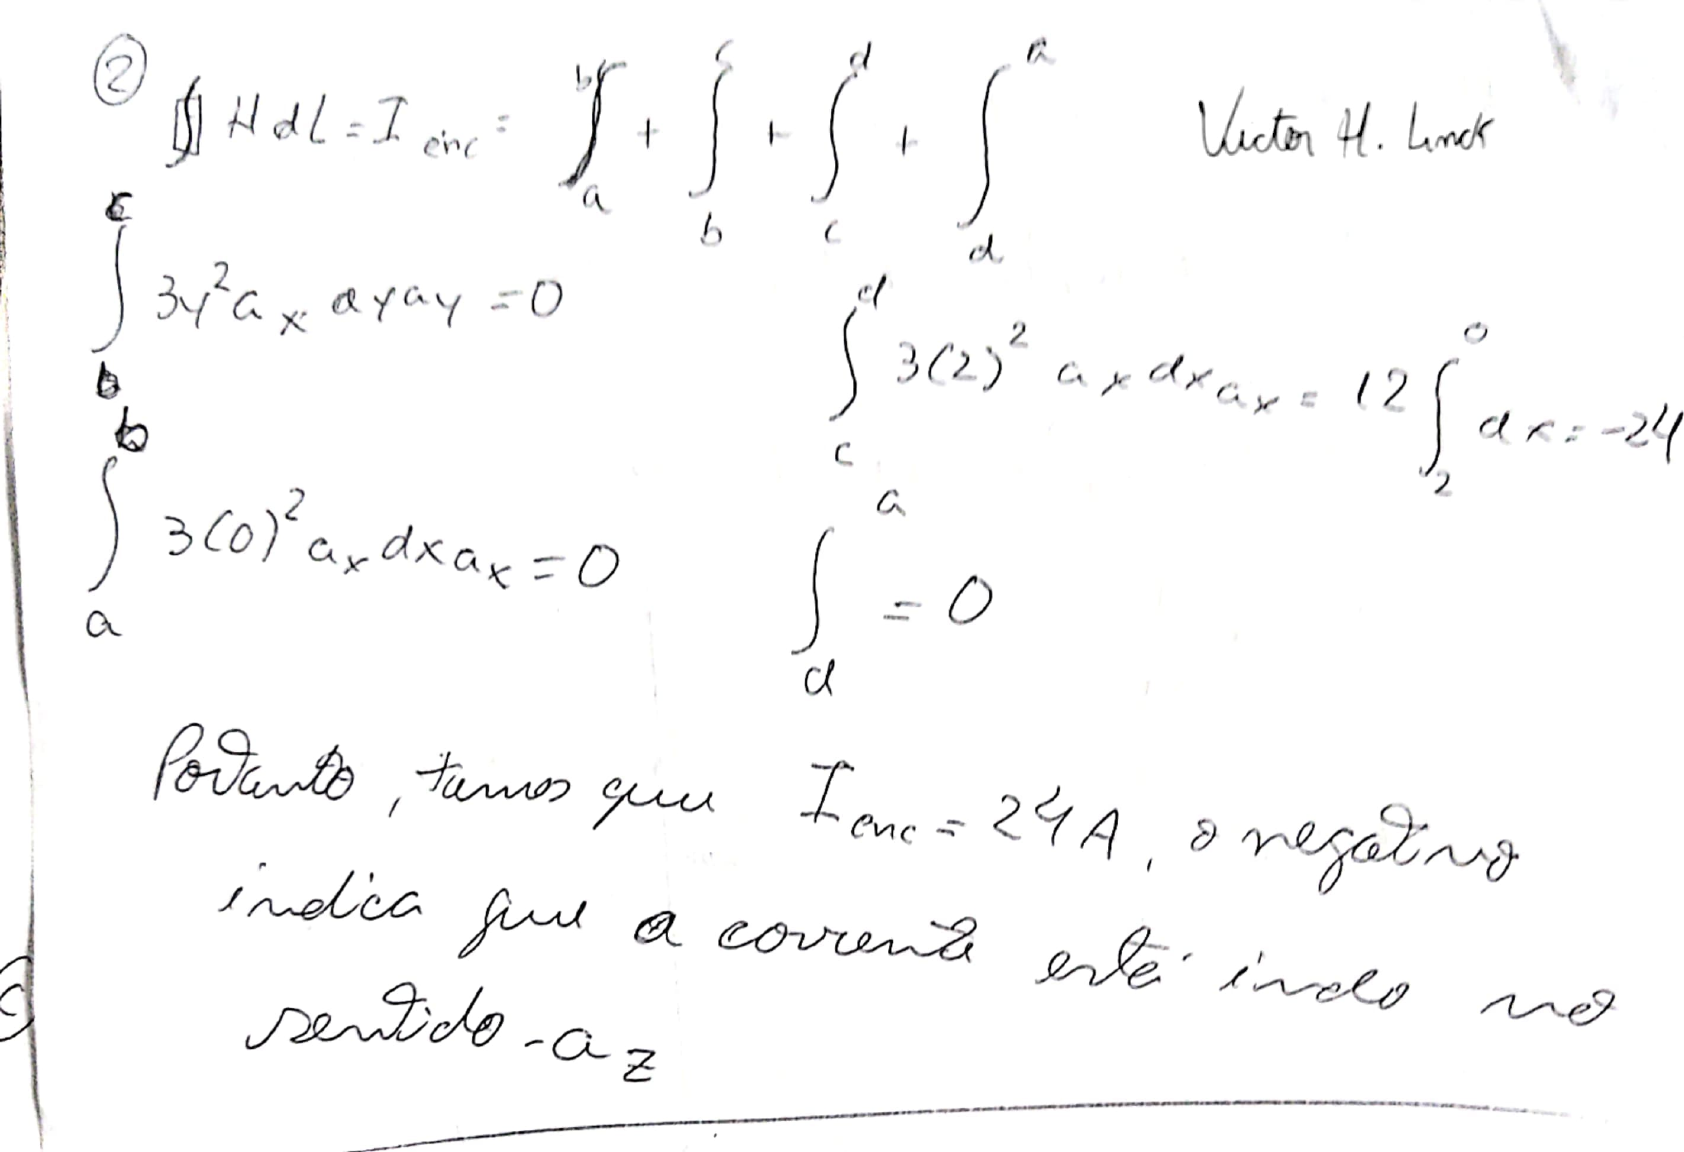 ②
∮ H dL = I enc = ∫ₐᵇ + ∫_b^c + ∫_c^d + ∫_d^a
Victor H. Linck
∫_b^c 3y² a_x dy a_y = 0
∫_c^d 3(2)² a_x dx a_x = 12 ∫_2^0 dx = -24
∫_a^b 3(0)² a_x dx a_x = 0
∫_d^a = 0
Portanto, temos que I enc = 24A, o negativo
indica que a corrente está indo no
sentido -a_z